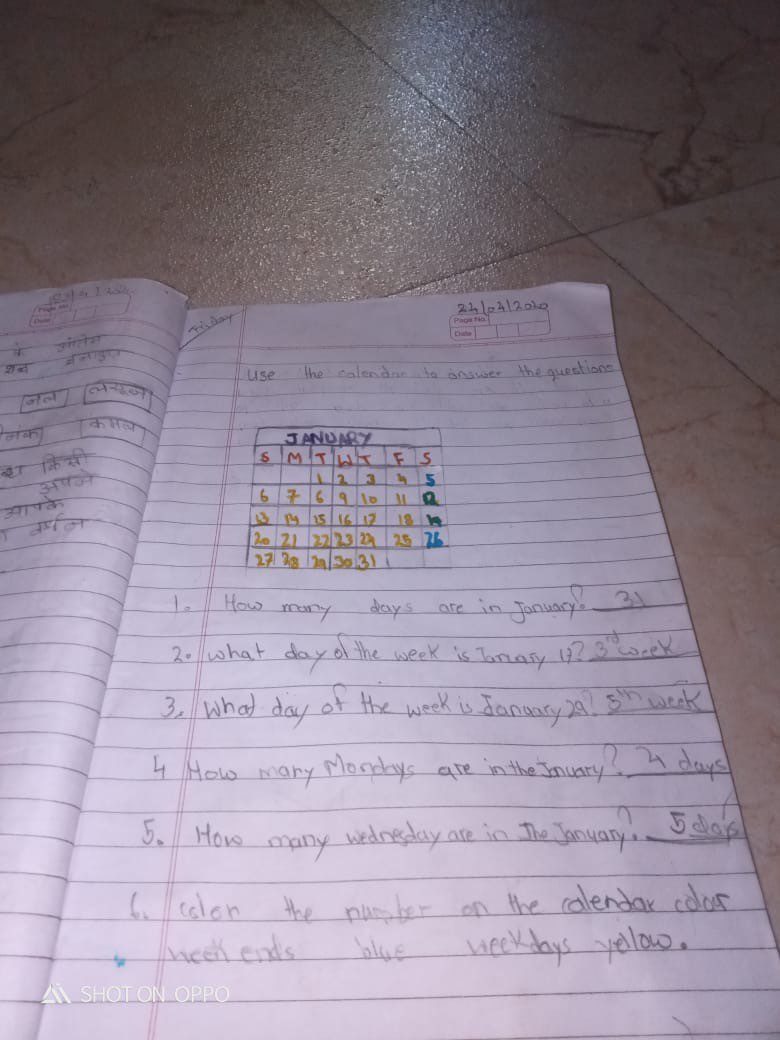 के अंतिम
शब्द बनाइए
जल
कमल
किसी
अपने
आपके
वर्णन
Page No.
Date
Friday
24/04/2020
Page No.
Date
Use the calendar to answer the questions
JANUARY
S M T W T F S
1 2 3 4 5
6 7 8 9 10 11 12
13 14 15 16 17 18 19
20 21 22 23 24 25 26
27 28 29 30 31
1. How many days are in January? 31
2. What day of the week is January 17? 3rd week
3. What day of the week is January 29? 5th week
4 How many Mondays are in the Jnuary? 4 days
5. How many wednesday are in The January? 5 days
6. color the number on the calendar color
week ends blue weekdays yellow.
SHOT ON OPPO